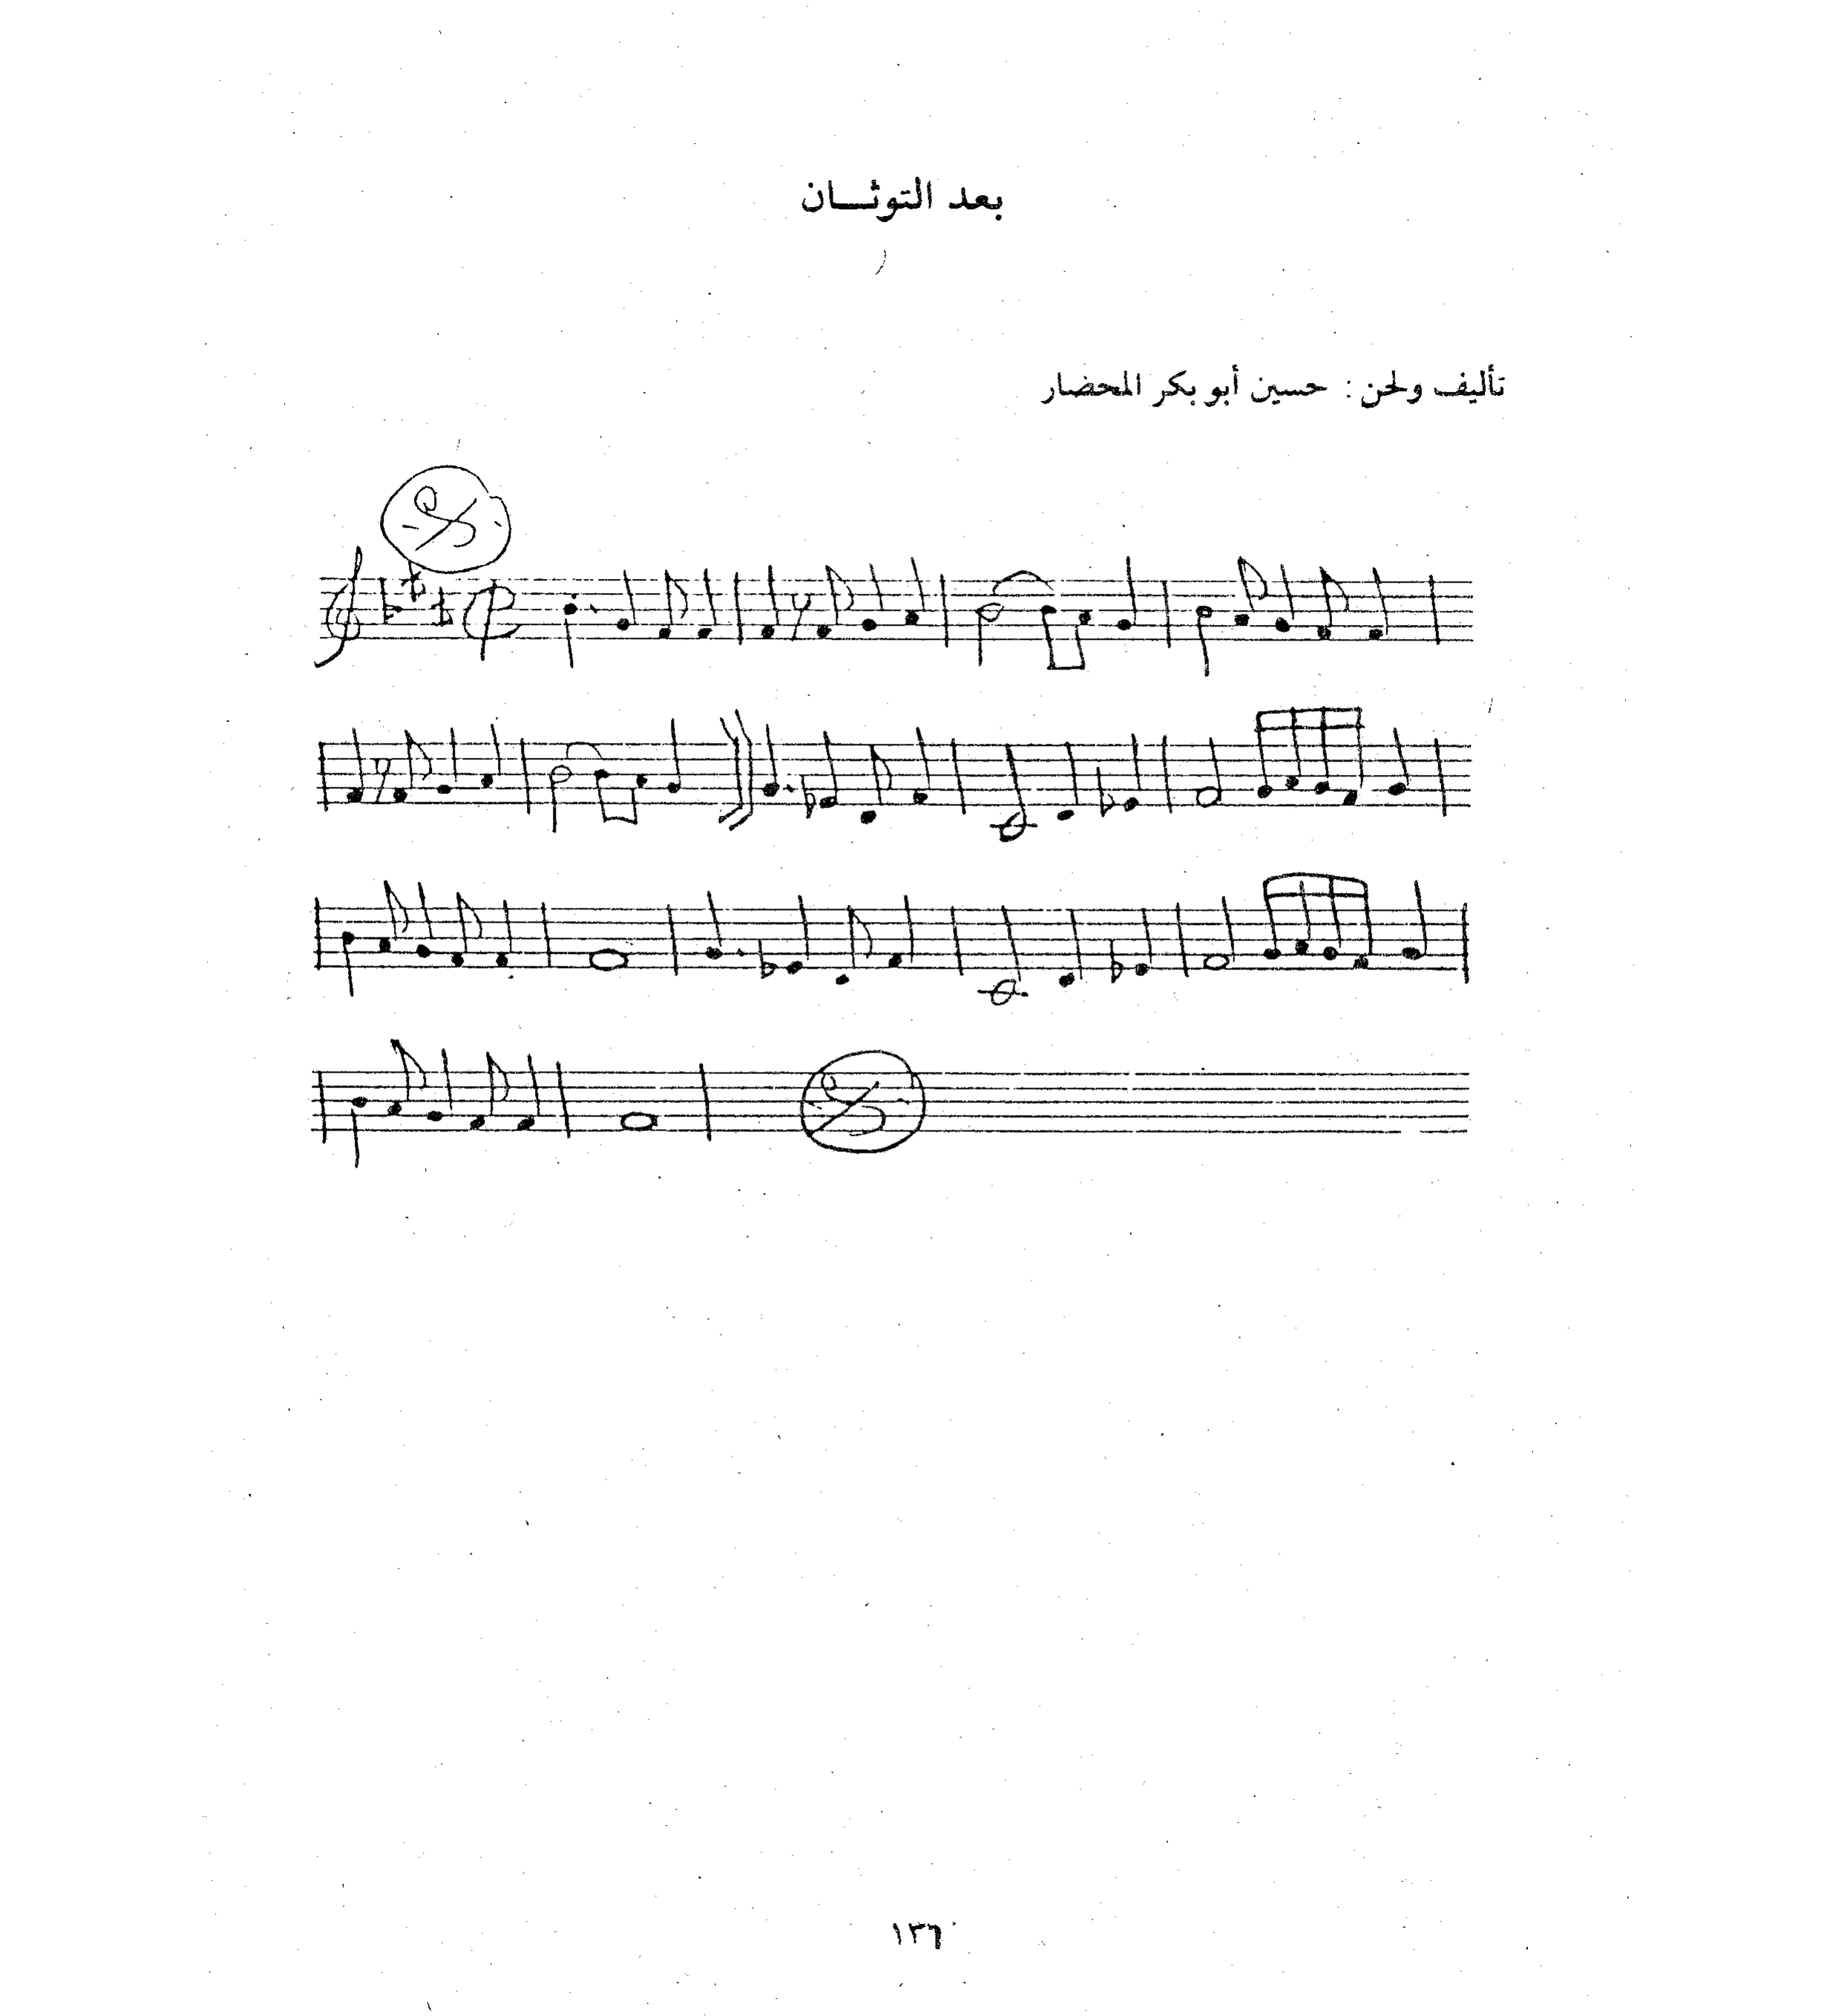 بعد التوثـــان
تأليف ولحن : حسين أبو بكر المحضار
١٣٦